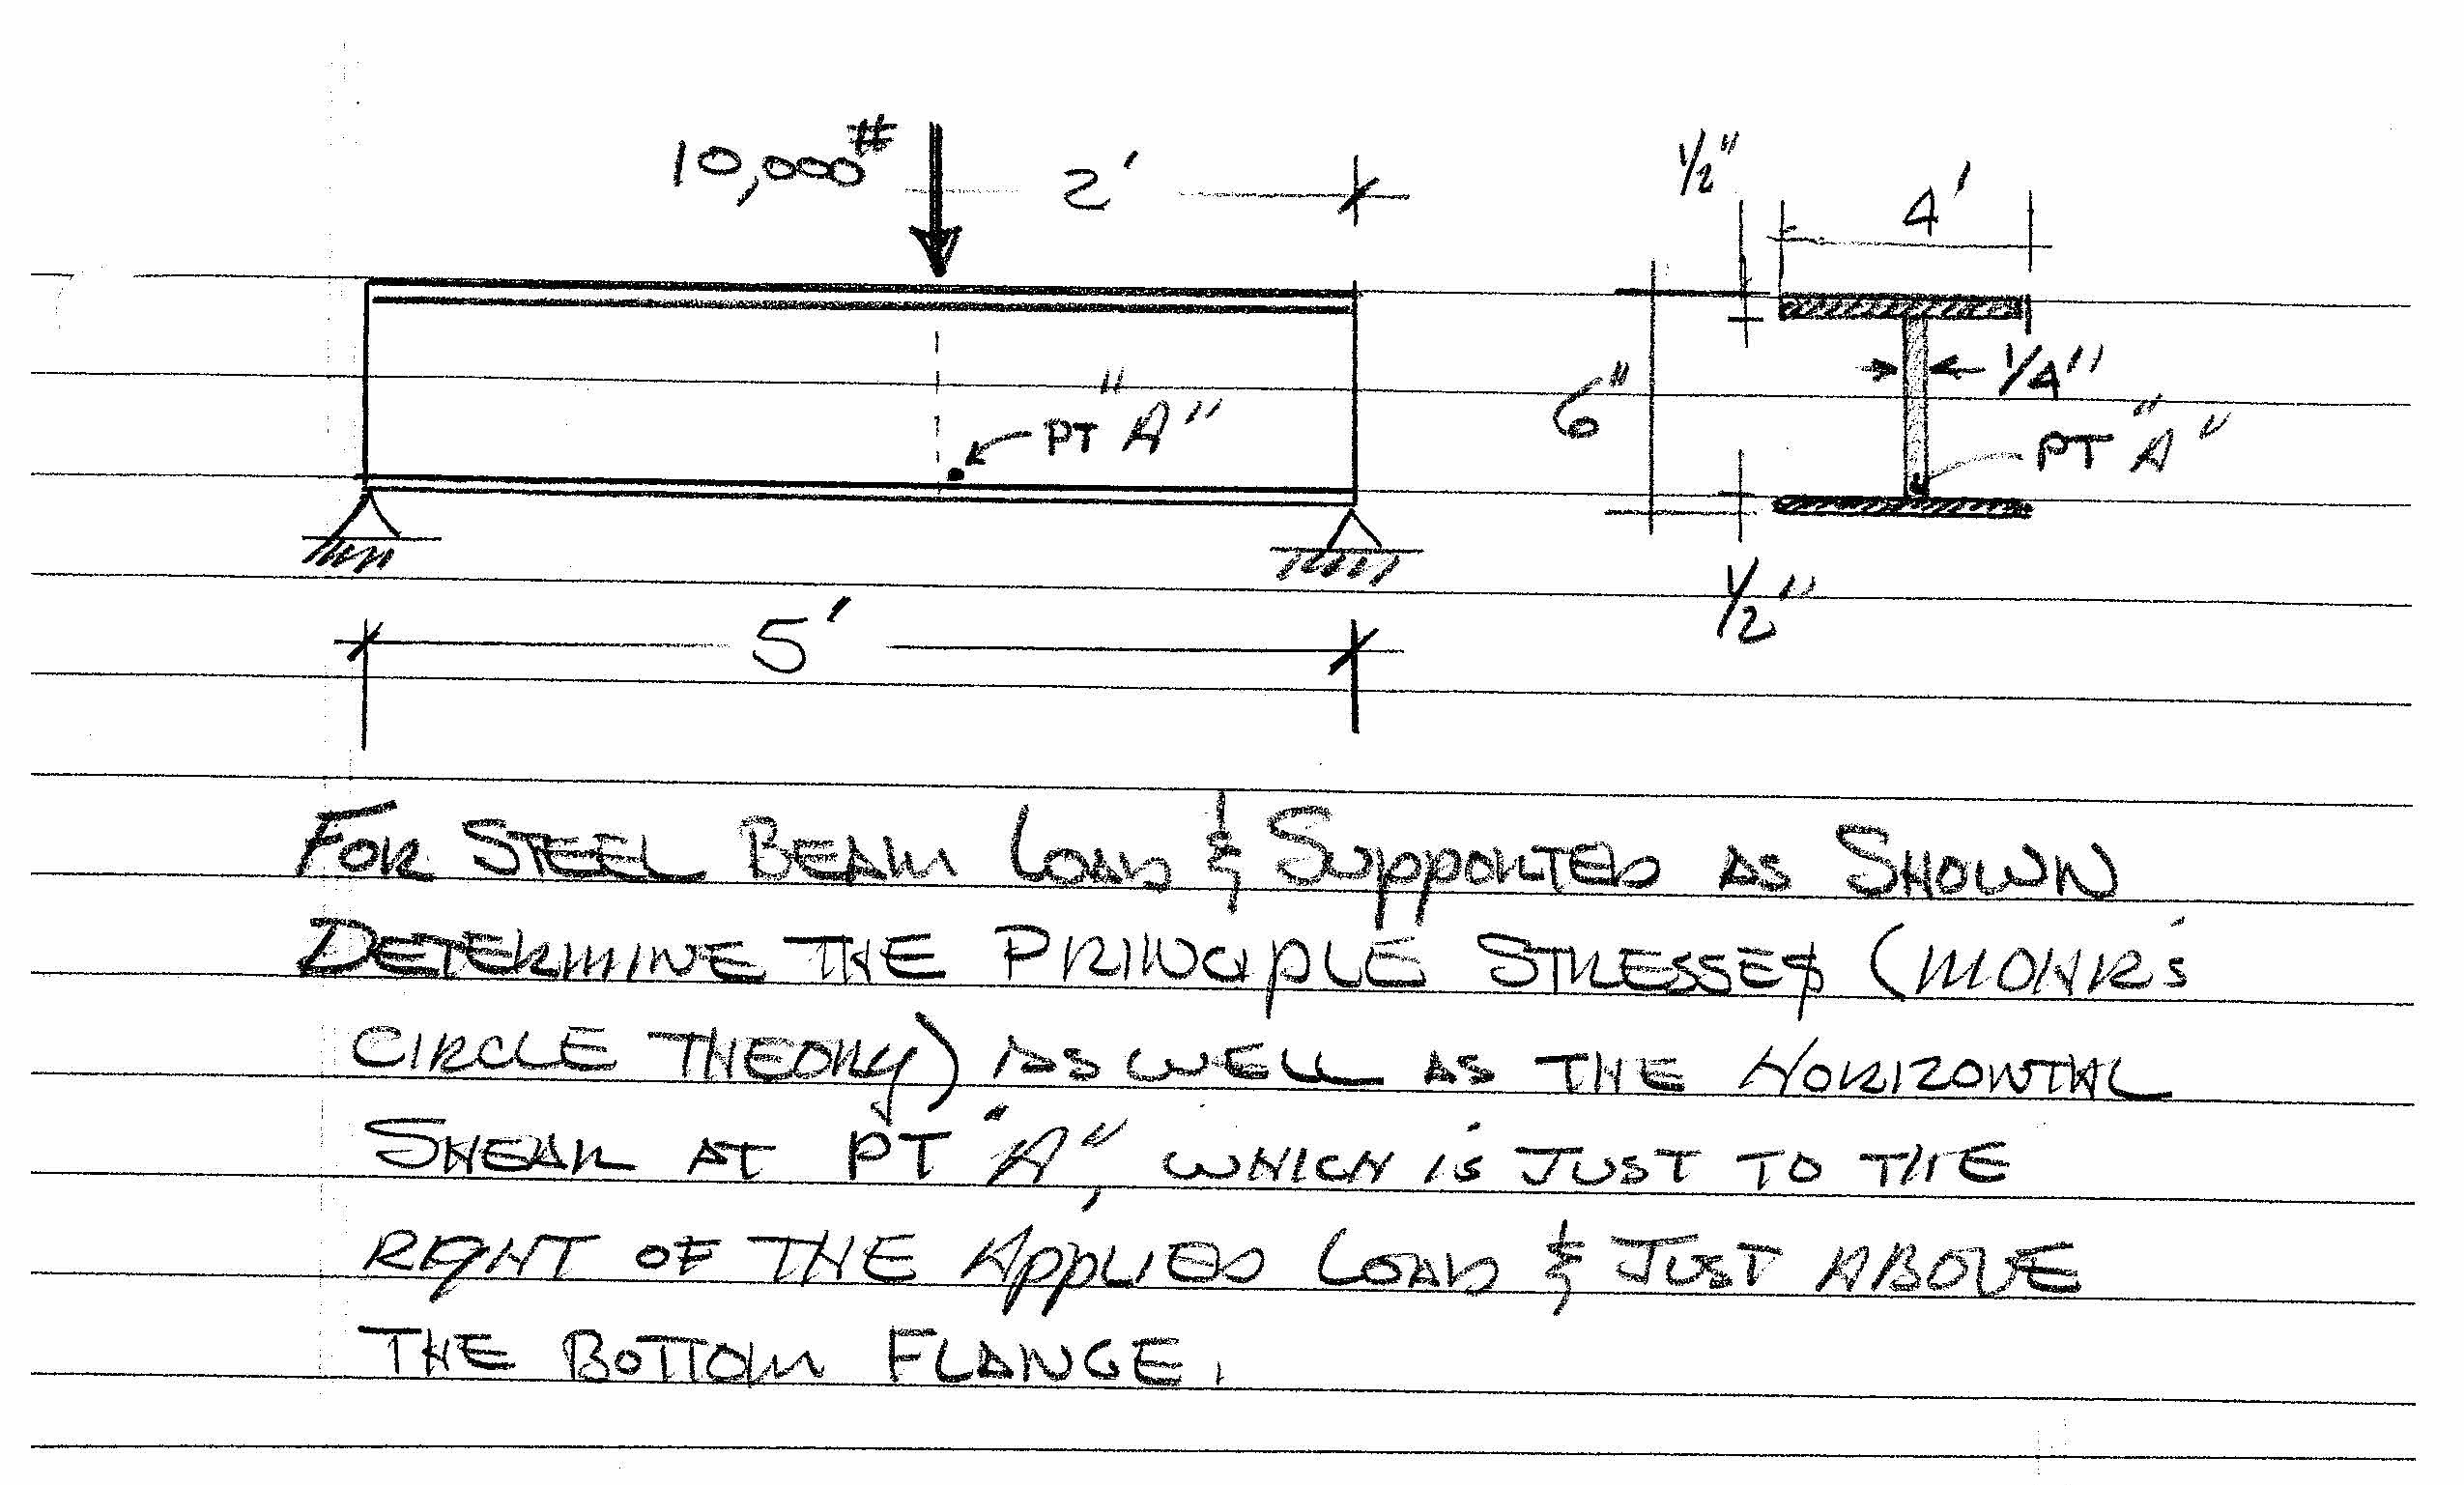 10,000#
2'
1/2"
4'
1/4"
6"
PT "A"
PT "A"
1/2"
5'
FOR STEEL BEAM LOAD & SUPPORTED AS SHOWN
DETERMINE THE PRINCIPLE STRESSES (MOHR'S
CIRCLE THEORY) AS WELL AS THE HORIZONTAL
SHEAR AT PT "A", WHICH IS JUST TO THE
RIGHT OF THE APPLIED LOAD & JUST ABOVE
THE BOTTOM FLANGE.